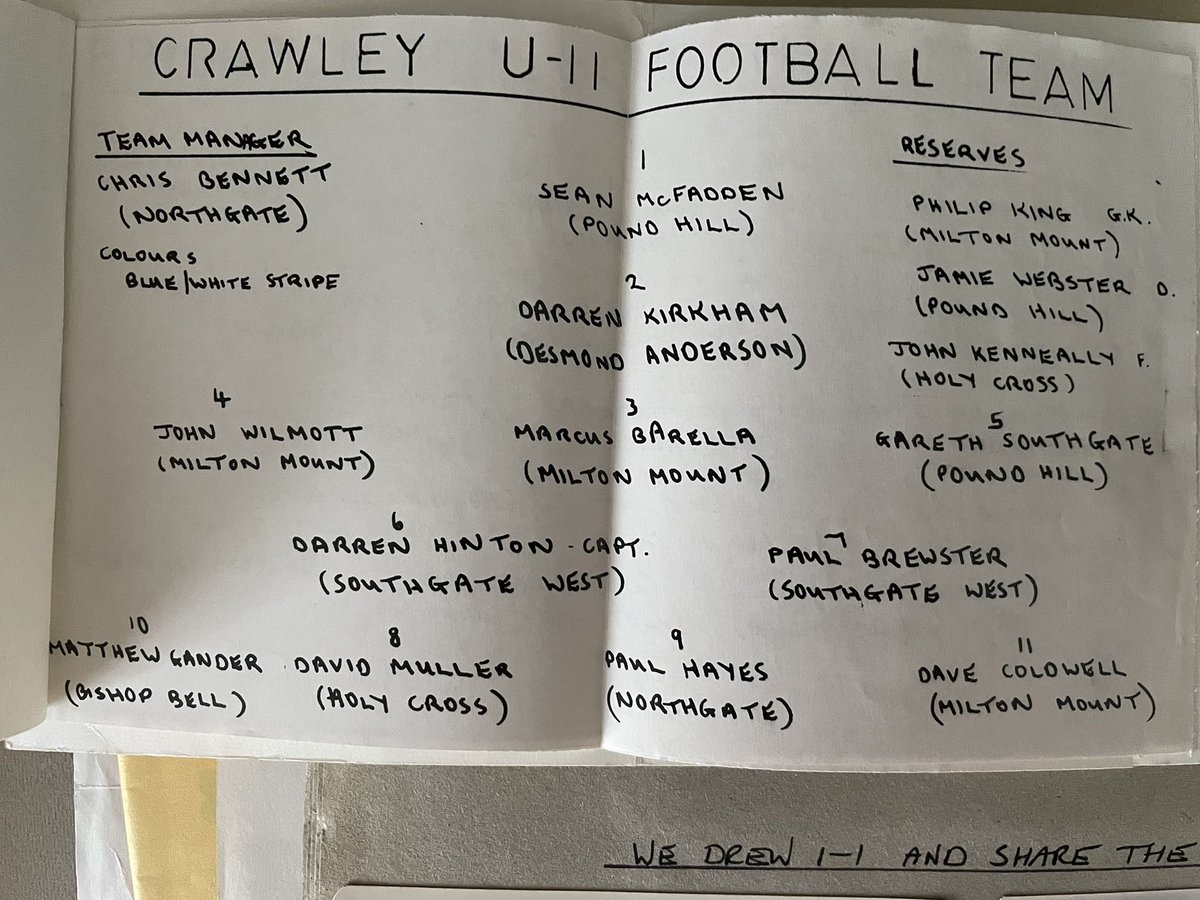 CRAWLEY U-11 FOOTBALL TEAM
TEAM MANAGER
CHRIS BENNETT
(NORTHGATE)
COLOURS
BLUE/WHITE STRIPE
1
SEAN McFADDEN
(POUND HILL)
2
DARREN KIRKHAM
(DESMOND ANDERSON)
RESERVES
PHILIP KING G.K.
(MILTON MOUNT)
JAMIE WEBSTER D.
(POUND HILL)
JOHN KENNEALLY F.
(HOLY CROSS)
4
JOHN WILMOTT
(MILTON MOUNT)
3
MARCUS BARELLA
(MILTON MOUNT)
5
GARETH SOUTHGATE
(POUND HILL)
6
DARREN HINTON - CAPT.
(SOUTHGATE WEST)
7
PAUL BREWSTER
(SOUTHGATE WEST)
10
MATTHEW GANDER
(BISHOP BELL)
8
DAVID MULLER
(HOLY CROSS)
9
PAUL HAYES
(NORTHGATE)
11
DAVE COLDWELL
(MILTON MOUNT)
WE DREW 1-1 AND SHARE THE